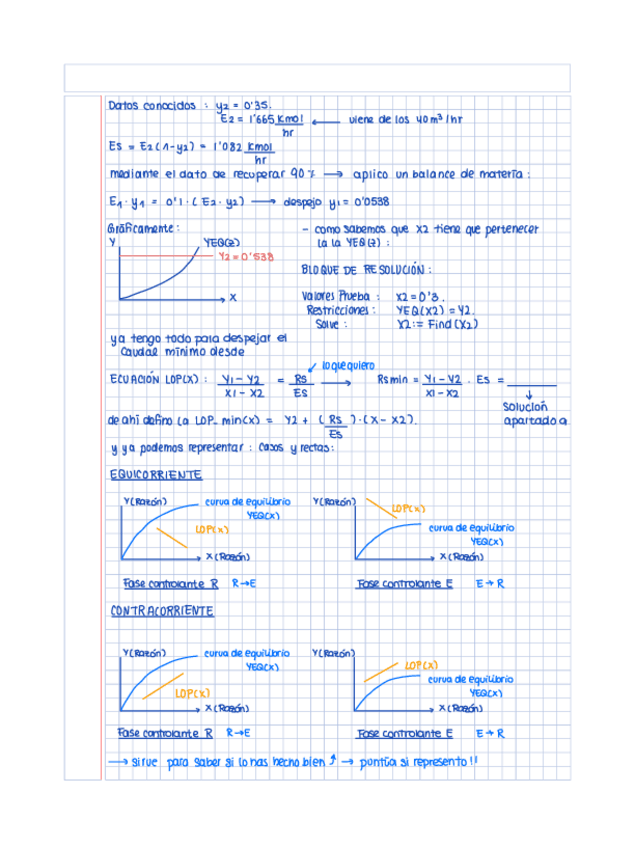 Datos conocidos : y2 = 0'35.
E2 = 1'665 Kmol/hr ← viene de los 40 m³/hr
Es = E2(1-y2) = 1'082 Kmol/hr
mediante el dato de recuperar 90% → aplico un balance de materia:
E1·y1 = 0'1·(E2·y2) → despejo y1 = 0'0538
Gráficamente:
- como sabemos que X2 tiene que pertenecer
la la YEQ(z):
Y
YEQ(z)
Y2=0'538
X
BLOQUE DE RESOLUCIÓN:
Valores Prueba : X2=0'3.
Restricciones: YEQ(X2) = Y2.
Solve: X2:= Find(X2)
ya tengo todo para despejar el
caudal mínimo desde
lo que quiero
ECUACIÓN LOP(X): Y1-Y2/X1-X2 = Rs/Es → Rsmin = Y1-Y2/X1-X2 · Es =
solución
apartado a
de ahí defino la LOP_min(x) = Y2 + (Rs/Es)·(X-X2).
y ya podemos representar: casos y rectas:
EQUICORRIENTE
Y(Razón) curva de equilibrio
YEQ(X)
LOP(X)
X(Razón)
Fase controlante R R→E
Y(Razón)
LOP(X)
curva de equilibrio
YEQ(X)
X(Razón)
Fase controlante E E→R
CONTRACORRIENTE
Y(Razón) curva de equilibrio
YEQ(X)
LOP(X)
X(Razón)
Fase controlante R R→E
Y(Razón)
LOP(X)
curva de equilibrio
YEQ(X)
X(Razón)
Fase controlante E E→R
→ sirve para saber si lo has hecho bien ↑ → puntúa si represento!!